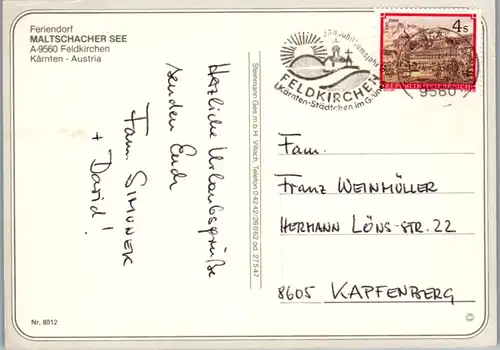 Feriendorf
MALTSCHACHER SEE
A-9560 Feldkirchen
Kärnten - Austria
Herzliche Urlaubsgrüße
senden Euch
Fam. SIMONEK
+ David!
Nr. 8012
Steinmann Ges.m.b.H. Villach, Telefon 0 42 42/28 0 62 od. 27 5 47
FELDKIRCHEN
i.Kärnten-Städtchen im G
4s
REPUBLIK ÖSTERREICH
9560
Fam.
FRANZ WEINMÜLLER
HERMANN LÖNS-STR. 22
8605 KAPFENBERG
©